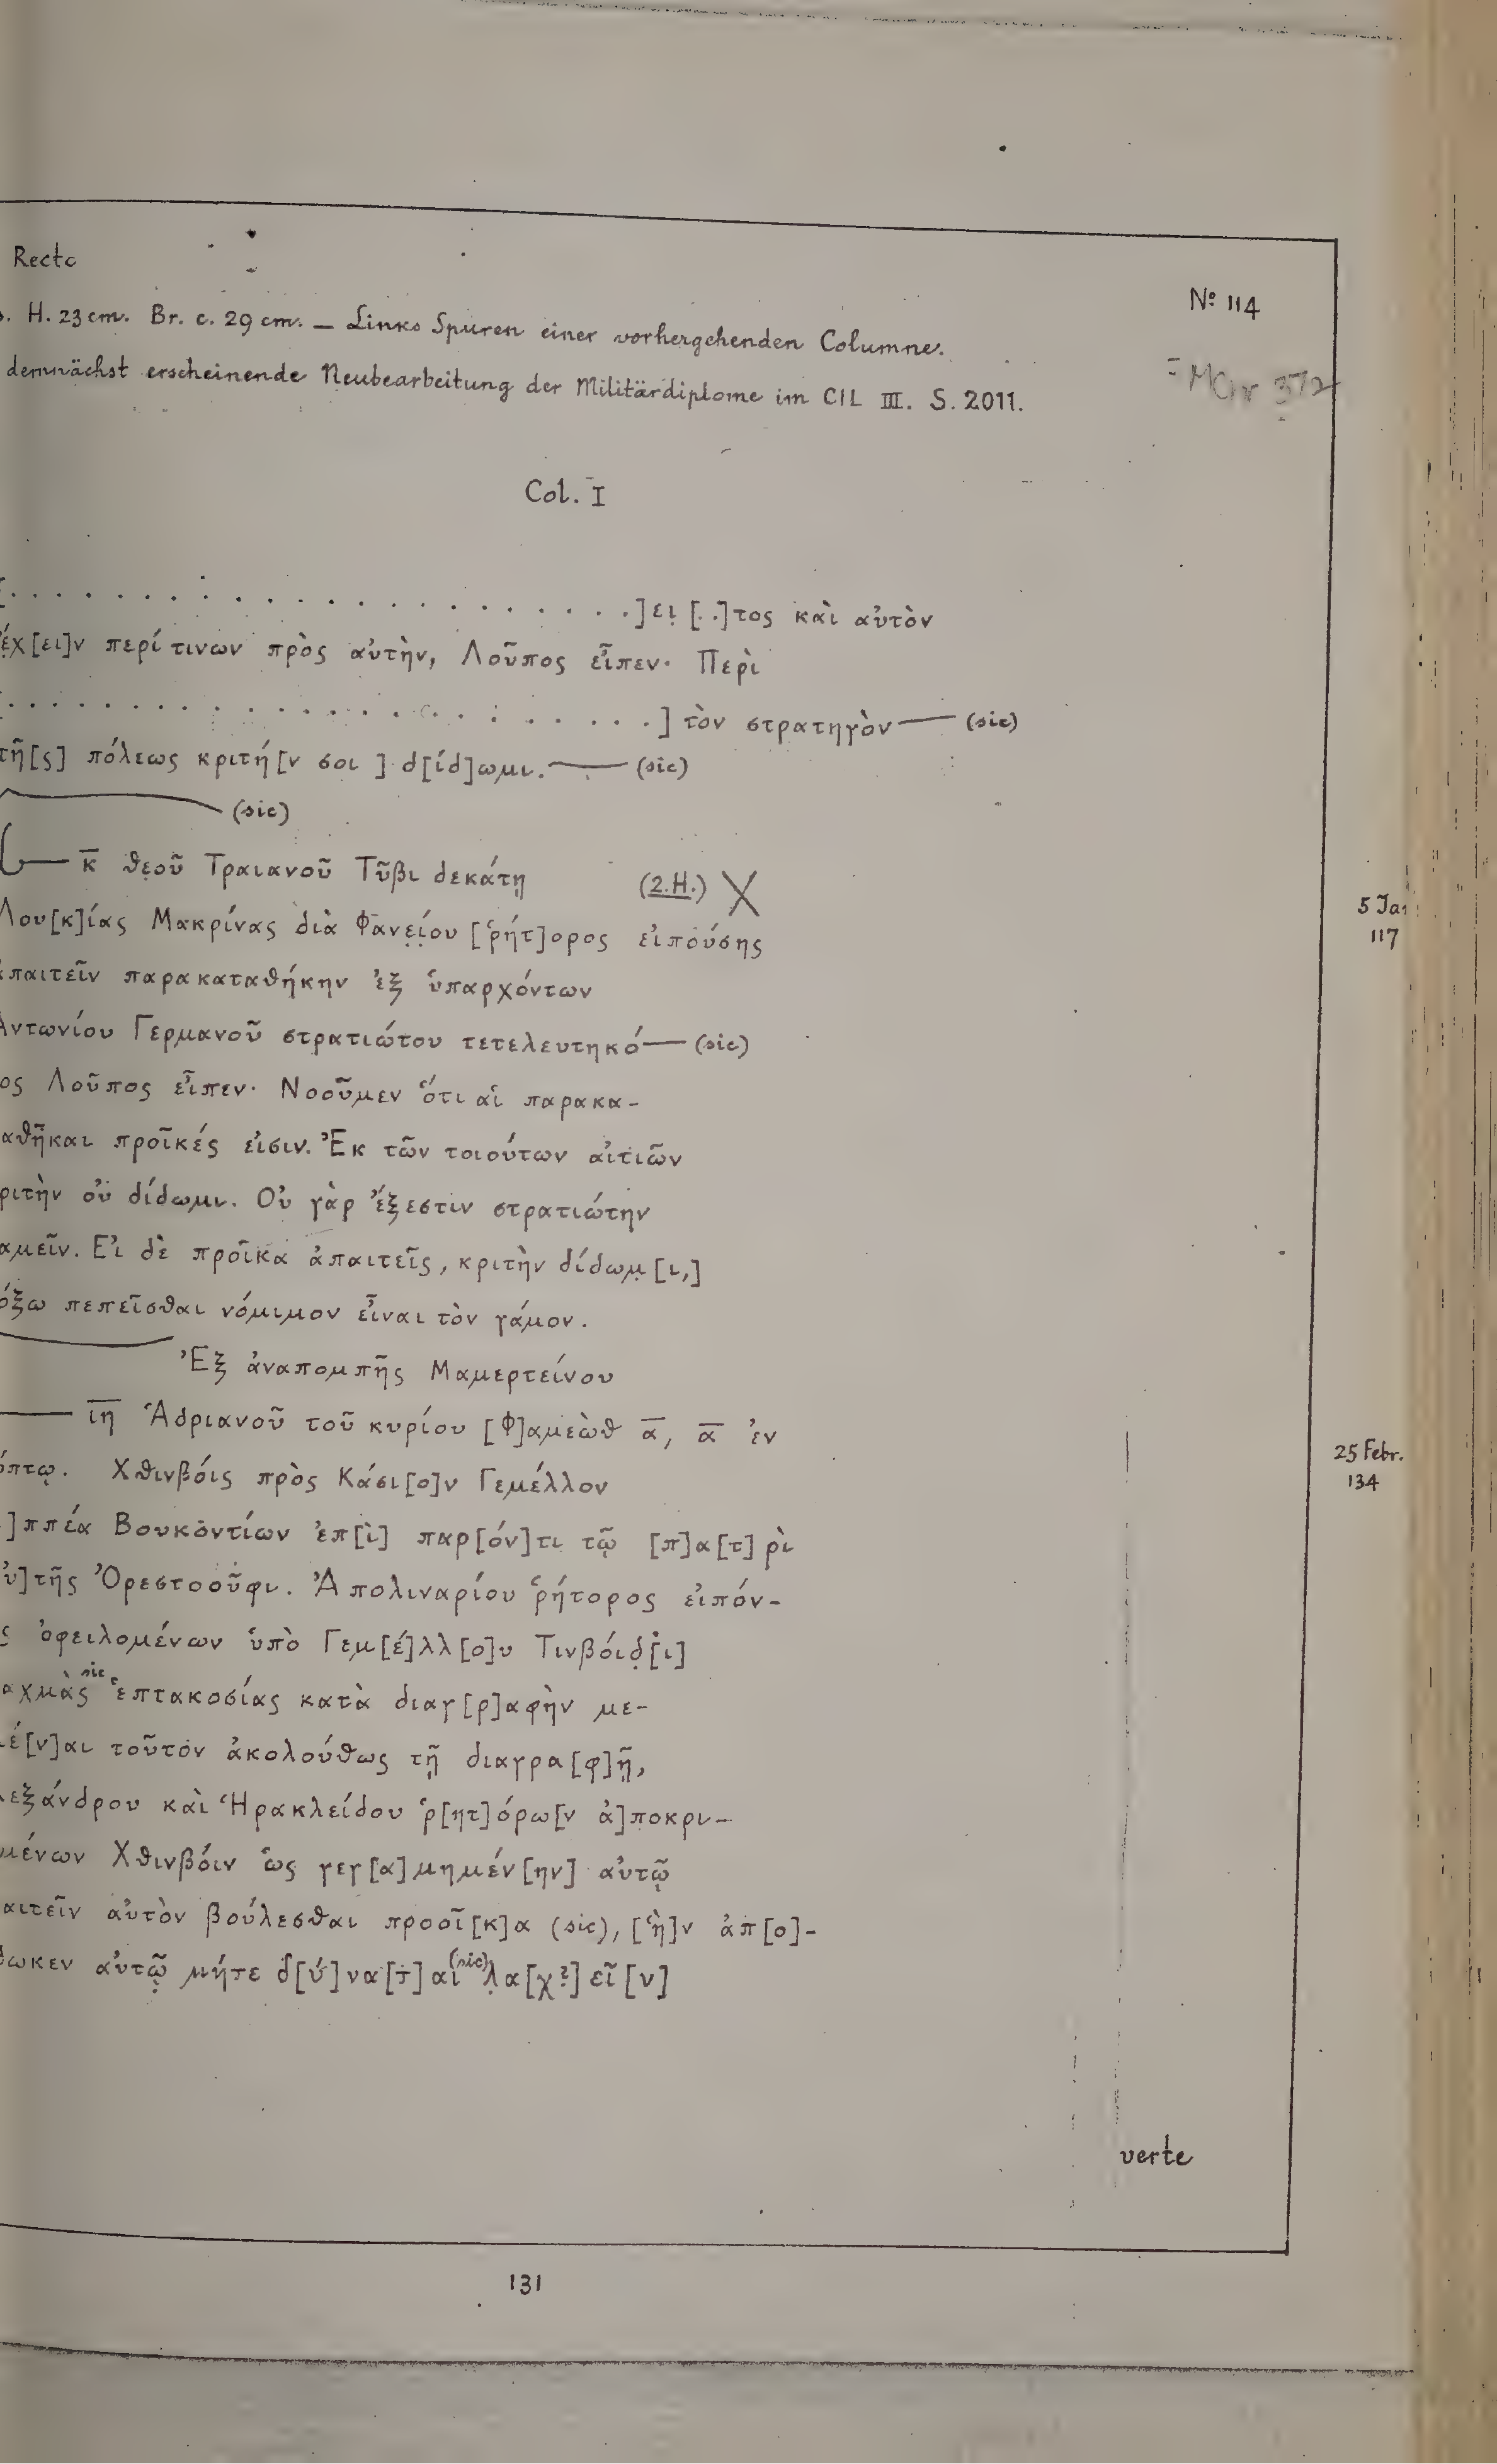 Recto
Nº 114
. H. 23 cm. Br. c. 29 cm. — Links Spuren einer vorhergehenden Columne.
demnächst erscheinende Neubearbeitung der Militärdiplome im CIL III. S. 2011.
= MChr 372
Col. I
[. . . . . . . . . . . . . . . . . . . . . .]ει [..]τος καὶ αὐτὸν
ἔχ[ει]ν περί τινων πρὸς αὐτὴν, Λοῦπος εἶπεν· Περὶ
[. . . . . . . . . . . . . . . . . . . . . .] τὸν στρατηγὸν — (sic)
τῆ[ς] πόλεως κριτή[ν σοι ] δ[ίδ]ωμι. — (sic)
(sic)
— κ̅ θεοῦ Τραιανοῦ Τῦβι δεκάτῃ (2.H.) X
5 Jan
117
Λου[κ]ίας Μακρίνας διὰ Φανείου [ῥήτ]ορος εἰπούσης
ἀπαιτεῖν παρακαταθήκην ἐξ ὑπαρχόντων
Ἀντωνίου Γερμανοῦ στρατιώτου τετελευτηκό — (sic)
ος Λοῦπος εἶπεν· Νοοῦμεν ὅτι αἱ παρακα-
αθῆκαι προῖκές εἰσιν. Ἐκ τῶν τοιούτων αἰτιῶν
ριτὴν οὐ δίδωμι. Οὐ γὰρ ἔξεστιν στρατιώτην
αμεῖν. Εἰ δὲ προῖκα ἀπαιτεῖς, κριτὴν δίδωμ[ι,]
όξω πεπεῖσθαι νόμιμον εἶναι τὸν γάμον.
Ἐξ ἀναπομπῆς Μαμερτείνου
— ι̅η̅ Ἁδριανοῦ τοῦ κυρίου [Φ]αμεὼθ α̅, α̅ ἐν
25 Febr.
134
όπτῳ. Χθινβόις πρὸς Κάσι[ο]ν Γεμέλλον
]ππέα Βουκοντίων ἐπ[ὶ] παρ[όν]τι τῷ [π]α[τ]ρὶ
ὐ]τῆς Ὀρεστοοῦφι. Ἀπολιναρίου ῥήτορος εἰπόν-
ς ὀφειλομένων ὑπὸ Γεμ[έ]λλ[ο]υ Τινβόιδ[ι]
αχμὰς (sic) ἑπτακοσίας κατὰ διαγ[ρ]αφὴν με-
έ[ν]αι τοῦτον ἀκολούθως τῇ διαγρα[φ]ῇ,
εξάνδρου καὶ Ἡρακλείδου ῥ[ητ]όρω[ν ἀ]ποκρι-
μένων Χθινβόιν ὡς γεγ[α]μημέν[ην] αὐτῷ
αιτεῖν αὐτὸν βούλεσθαι προοῖ[κ]α (sic), [ἣ]ν ἀπ[ο]-
δωκεν αὐτῷ μήτε δ[ύ]να[τ]αι (sic) λα[χ?]εῖ[ν]
verte
131